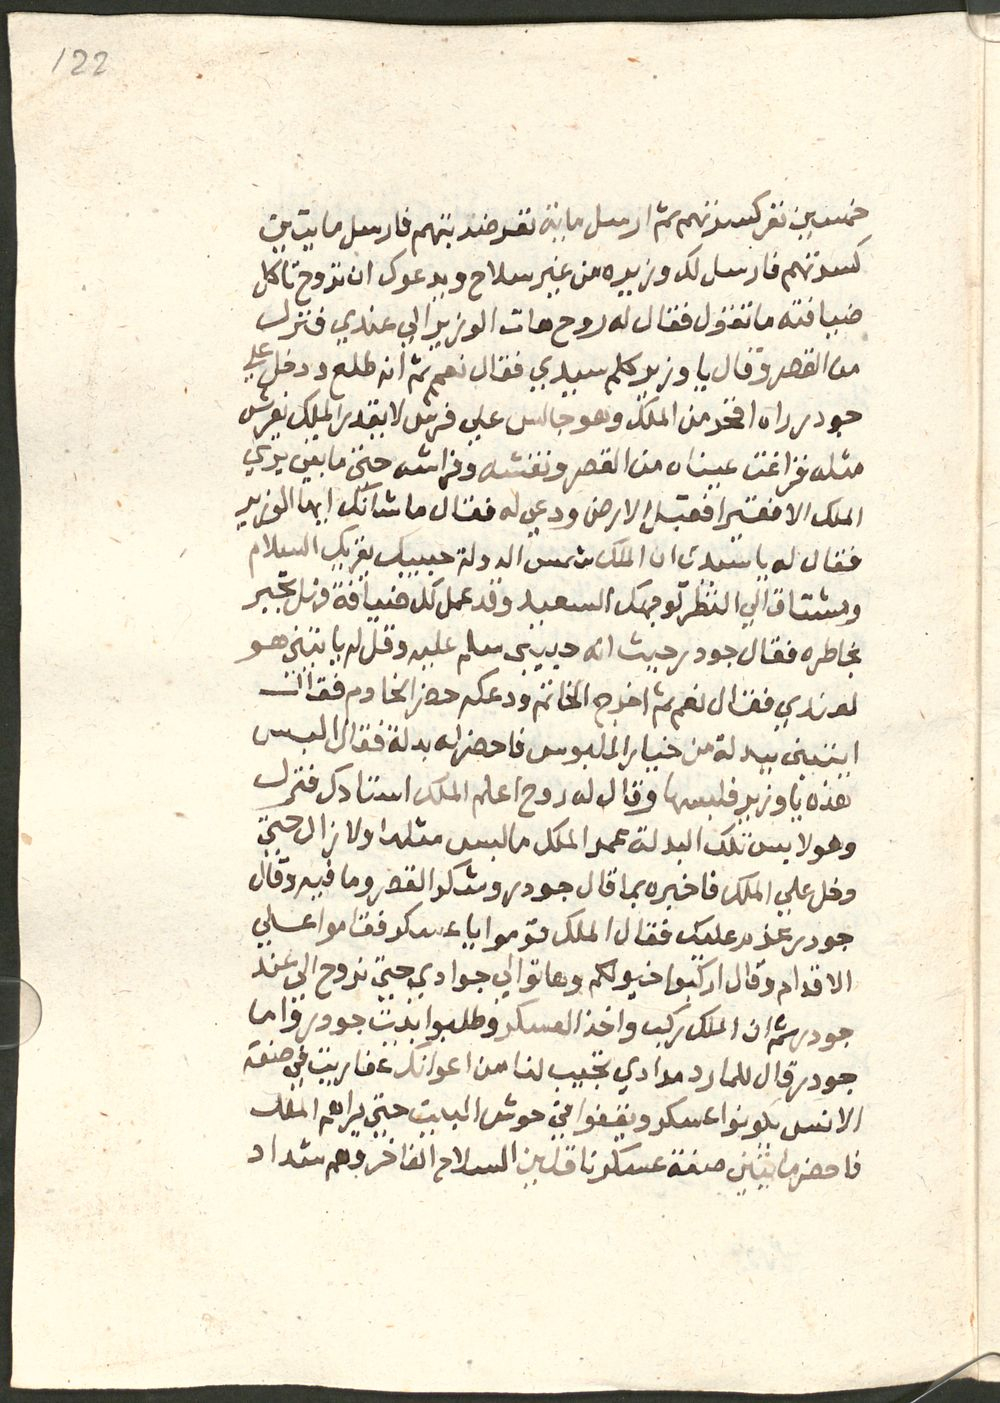 122
خمسين نفر كسرتهم ثم ارسل ماية نفر ضربتهم فارسل مايتين
كسرتهم فارسل لك وزيره من غير سلاح ويدعوك ان تروح تاكل
ضيافته ما تقول فقال له روح هات الوزير الي عندي فنزل
من القصر وقال يا وزير كلم سيدي فقال نعم ثم انه طلع ودخل علي
جودر راه افخر من الملك وهو جالس علي فرش لا يقدر الملك يفرش
مثله فزاغت عيناه من القصر ونقشه وفراشه حتي ما بقي يري
الملك الا فقير فقبل الارض ودعي له فقال ما شانك ايها الوزير
فقال له يا سيدي ان الملك شمس الدولة حبيبك يقريك السلام
ومشتاق الي النظر لوجهك السعيد وقد عمل لك ضيافة فهل تجبر
بخاطره فقال جودر حيث انه حبيبي سلم عليه وقل له ياتيني هو
لعندي فقال نعم ثم اخرج الخاتم ودعكه حضر الخادم فقال
ايتيني ببدلة من خيار الملبوس فاحضر له بدلة فقال البس
هذه يا وزير فلبسها وقال له روح اعلم الملك استادك فنزل
وهو لابس تلك البدلة عمر الملك ما لبس مثلها ولا زال حتي
دخل علي الملك فاخبره بما قال جودر وشكر القصر وما فيه وقال
جودر عذم عليك فقال الملك قوموا يا عسكر فقاموا علي
الاقدام وقال اركبوا خيولكم وهاتوا لي جوادي حتي نروح الي عند
جودر ثم ان الملك ركب واخذ العسكر وطلبوا بيت جودر واما
جودر قال للمارد مرادي تجيب لنا من اعوانك عفاريت في صفة
الانس يكونوا عسكر ويقفوا في حوش البيت حتي يراهم الملك
فاحضر مايتين صفة عسكر ناقلين السلاح الفاخر وهم شداد